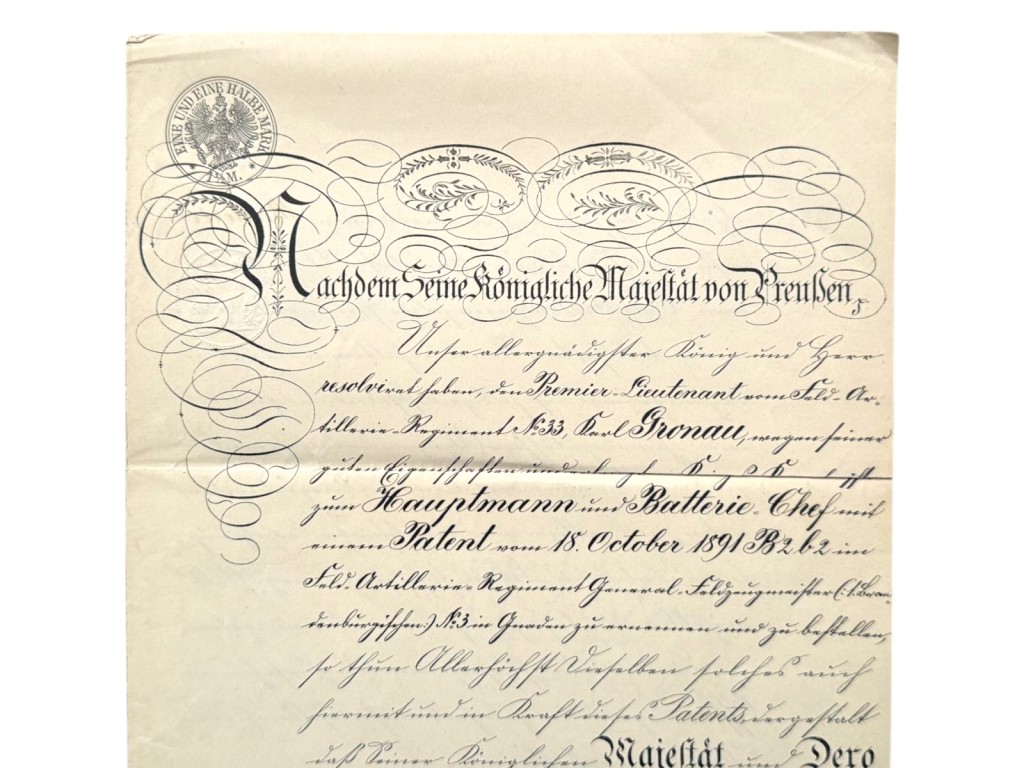 EINE UND EINE HALBE MARK
1½ M.
Nachdem Seine Königliche Majestät von Preußen,
Unser allergnädigster König und Herr
resolviret haben, den Premier-Lieutenant vom Feld-Ar-
tillerie-Regiment No 33, Karl Gronau, wegen seiner
guten Eigenschaften und
zum Hauptmann und Batterie-Chef mit
einem Patent vom 18. October 1891 B2b2 im
Feld-Artillerie-Regiment General-Feldzeugmeister (:1. Bran-
denburgischen:) No 3 in Gnaden zu ernennen und zu bestellen,
so thun Allerhöchst Dieselben solches auch
hiermit und in Kraft dieses Patents, dergestalt
daß Seiner Königlichen Majestät und Dero